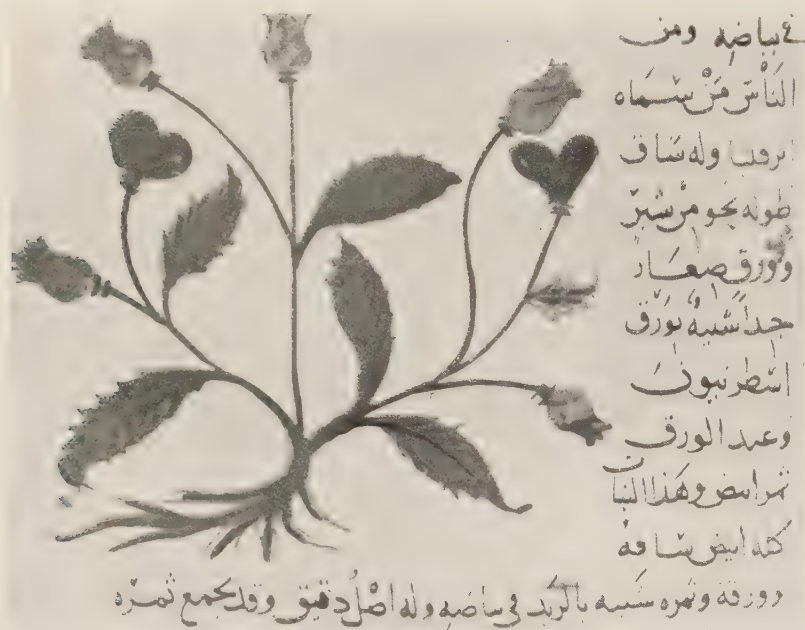 في بياضه ومن
الناس من سماه
وله ساق
طوله نحو من شبر
وورق صغار
جداً شبيه بورق
اسطرنيون
وعند الورق
ثمر ابيض وهذا النبات
كله ابيض ساقه
وورقه وثمره شبيه بالزبد في بياضه وله اصل دقيق وقد يجمع ثمره